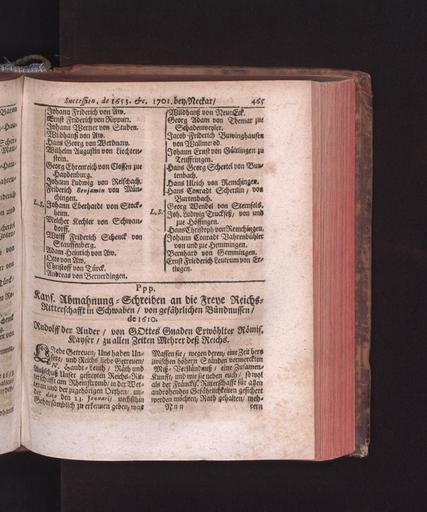 Succession. de 1653. &c. 1701. bey Neckar/ 465
Johann Friderich von Aw.
Ernst Friderich von Rippurr.
Johann Werner von Stuben.
Wildhanß von Aw.
Hans Georg von Werdnaw.
Wilhelm Augustin von Liechten-
stein.
Georg Ehrenreich von Clossen zur
Haydenburg.
Johann Ludwig von Reischach.
Friderich Benjamin von Mün-
chingen.
L.S. Johann Eberhardt von Stock-
heim.
Melcher Kechler von Schwan-
dorff.
Wolff Friderich Schenck von
Stauffenberg.
Adam Heinrich von Aw.
Otto von Aw.
Christoff von Türck.
Andreas von Bernerdingen.
Wildhanß von NeunEck.
Georg Adam von Themar zue
Schadenweyler.
Jacob Friderich Buwinghausen
von Wallmerod.
Johann Ernst von Gültlingen zu
Teuffringen.
Hans Georg Schertel von Bur-
tenbach.
Hans Ulrich von Remchingen.
Hans Conradt Schertlin, von
Burtenbach.
Georg Wendel von Sternfels.
L.S. Joh. Ludwig Truckseß, von und
zue Höfingen.
Hans Christoph von Remchingen.
Johann Conradt Vahrenbühler
von und zue Hemmingen.
Bernhard von Gemmingen.
Ernst Friederich Leutrum von Er-
tingen.
Ppp.
Kays. Abmahnung-Schreiben an die Freye Reichs-
Ritterschafft in Schwaben/ von gefährlichen Bündnussen/
de 1610.
Rudolff der Ander/ von GOttes Gnaden Erwöhlter Römis.
Kayser/ zu allen Zeiten Mehrer deß Reichs.
Liebe Getreuen/ Uns haben Un-
sere, und Reichs liebe Getreuen/
N. Haubt-Leuth/ Räth und
Außschuß Unser gefreyten Reichs-Rit-
terschafft am Rheinstromb/ in der Wet-
teraw und der zugehörigen Orthen/ un-
der dato den 23. Januarij nechsthin
Gehorsamblich zu erkennen geben, was
Massen sie/ wegen deren/ eine Zeit hero
zwischen höhern Ständen vermerckten
Miß-Verständnuß/ eine Zusamen-
Kunfft/ und wie sie neben euch/ so wol
als der Fränckis. Ritterschafft für allen
androhenden Gefährlichkeiten gesichert
werden möchten/ Rath gehalten/ meh-
Nnn rern